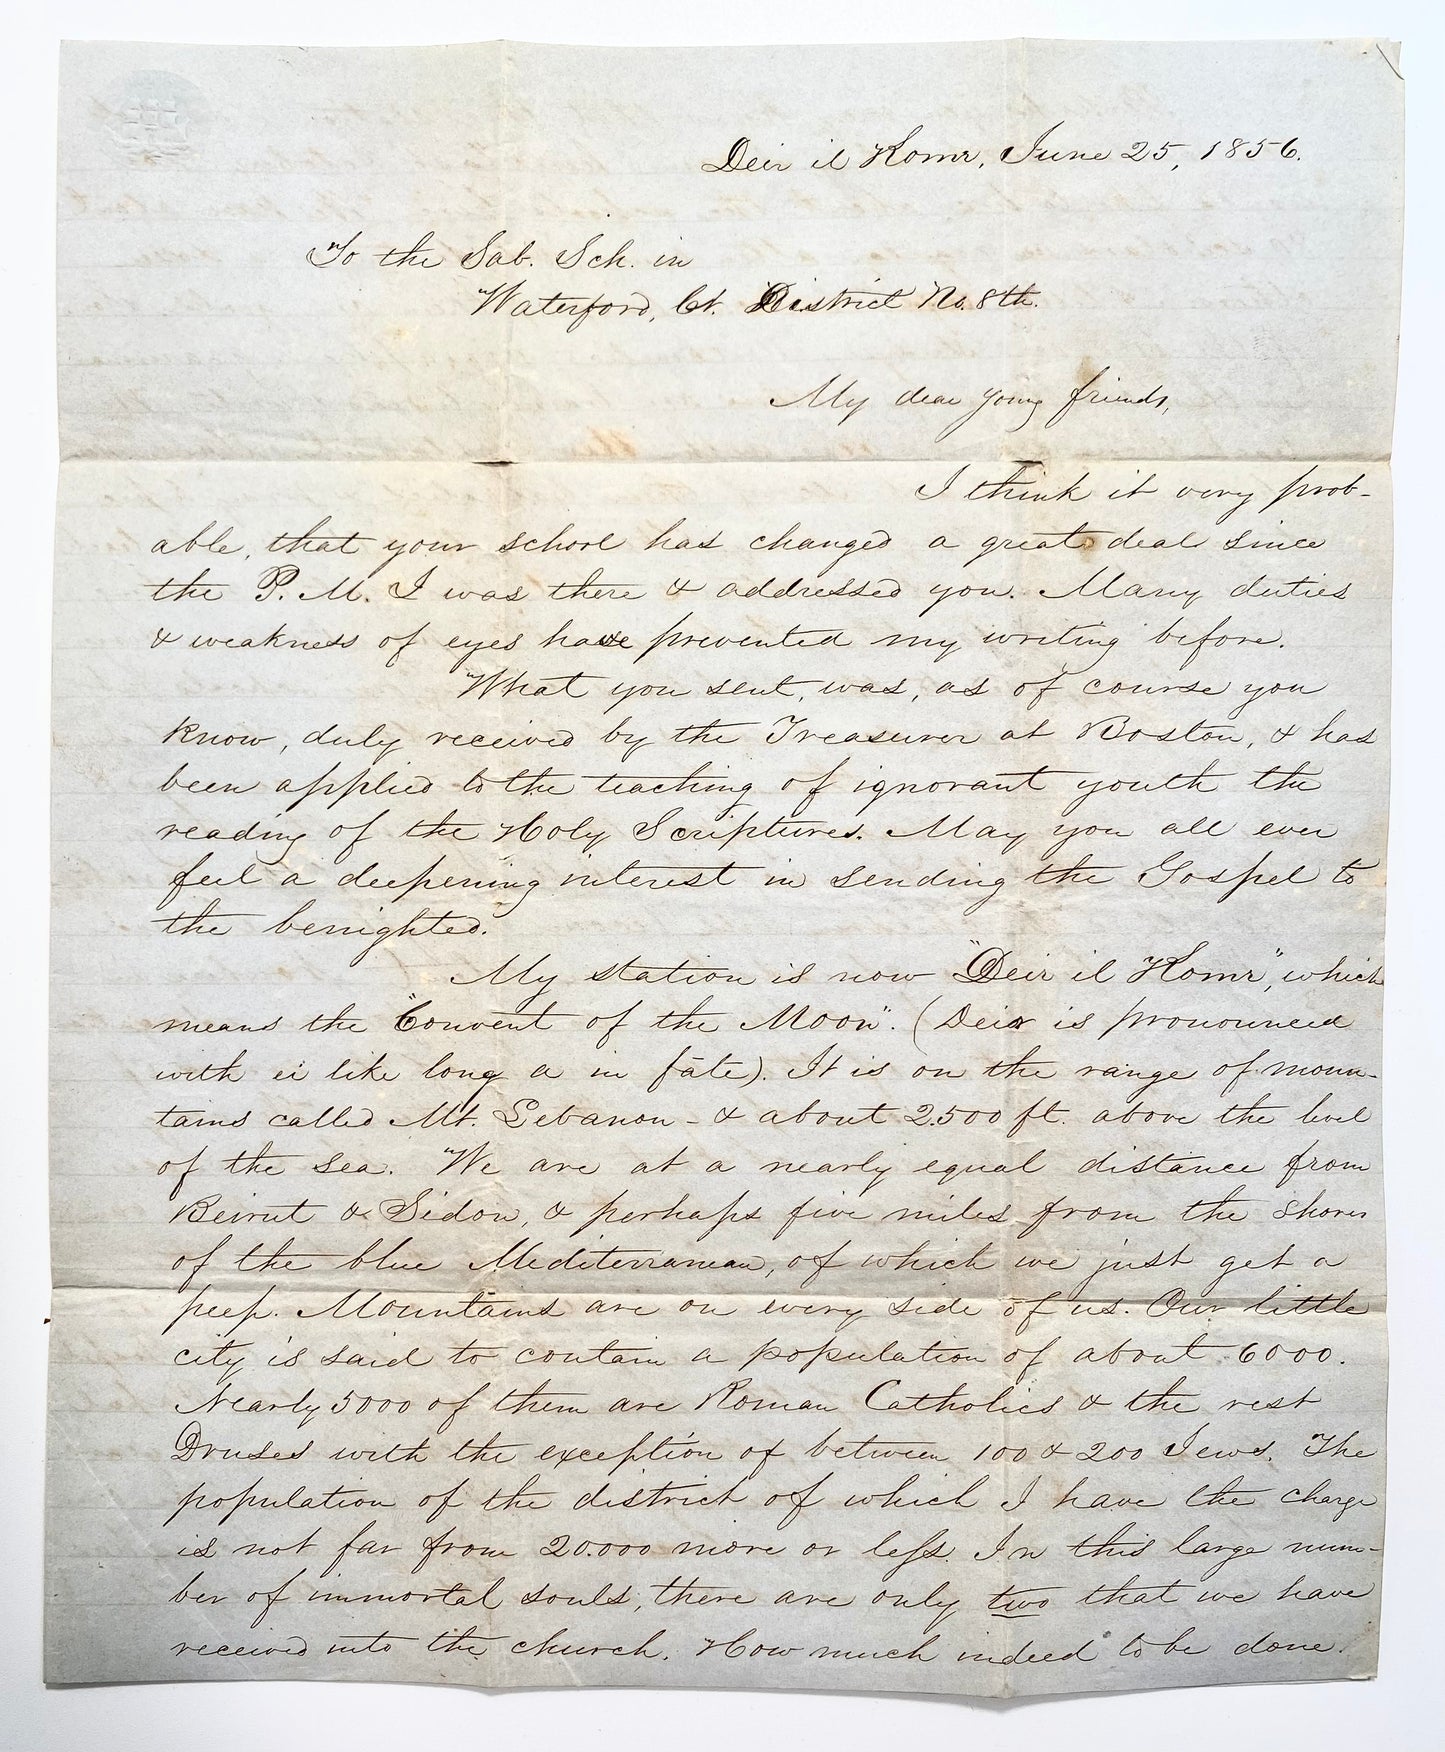 Deir il Komr, June 25, 1856.
To the Sab. Sch. in
Waterford, Ct. District No. 8th.
My dear young friends,
I think it very prob-
able, that your school has changed a great deal since
the P. M. I was there & addressed you. Many duties
& weakness of eyes have prevented my writing before.
What you sent, was, as of course you
know, duly received by the Treasurer at Boston, & has
been applied to the teaching of ignorant youth the
reading of the Holy Scriptures. May you all ever
feel a deepening interest in sending the Gospel to
the benighted.
My station is now "Deir il Komr", which
means the "Convent of the Moon". (Deir is pronounced
with ei like long a in fāte). It is on the range of moun-
tains called Mt. Lebanon - & about 2500 ft. above the level
of the sea. We are at a nearly equal distance from
Beirut & Sidon, & perhaps five miles from the shores
of the blue Mediterranean, of which we just get a
peep. Mountains are on every side of us. Our little
city is said to contain a population of about 6000.
Nearly 5000 of them are Roman Catholics & the rest
Druses with the exception of between 100 & 200 Jews. The
population of the district of which I have the charge
is not far from 20.000 more or less. In this large num-
ber of immortal souls, there are only two that we have
received into the church. How much indeed to be done.